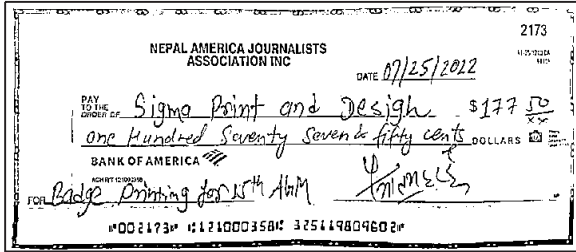 2173
NEPAL AMERICA JOURNALISTS
ASSOCIATION INC
DATE 07/25/2022
PAY
TO THE
ORDER OF Sigma Print and Design $177 50/xx
one Hundred Seventy Seven & fifty cents DOLLARS
BANK OF AMERICA
ACH R/T 121000358
FOR Badge Printing for 15th AGM
⑈002173⑈ ⑆121000358⑆ 325119809602⑈